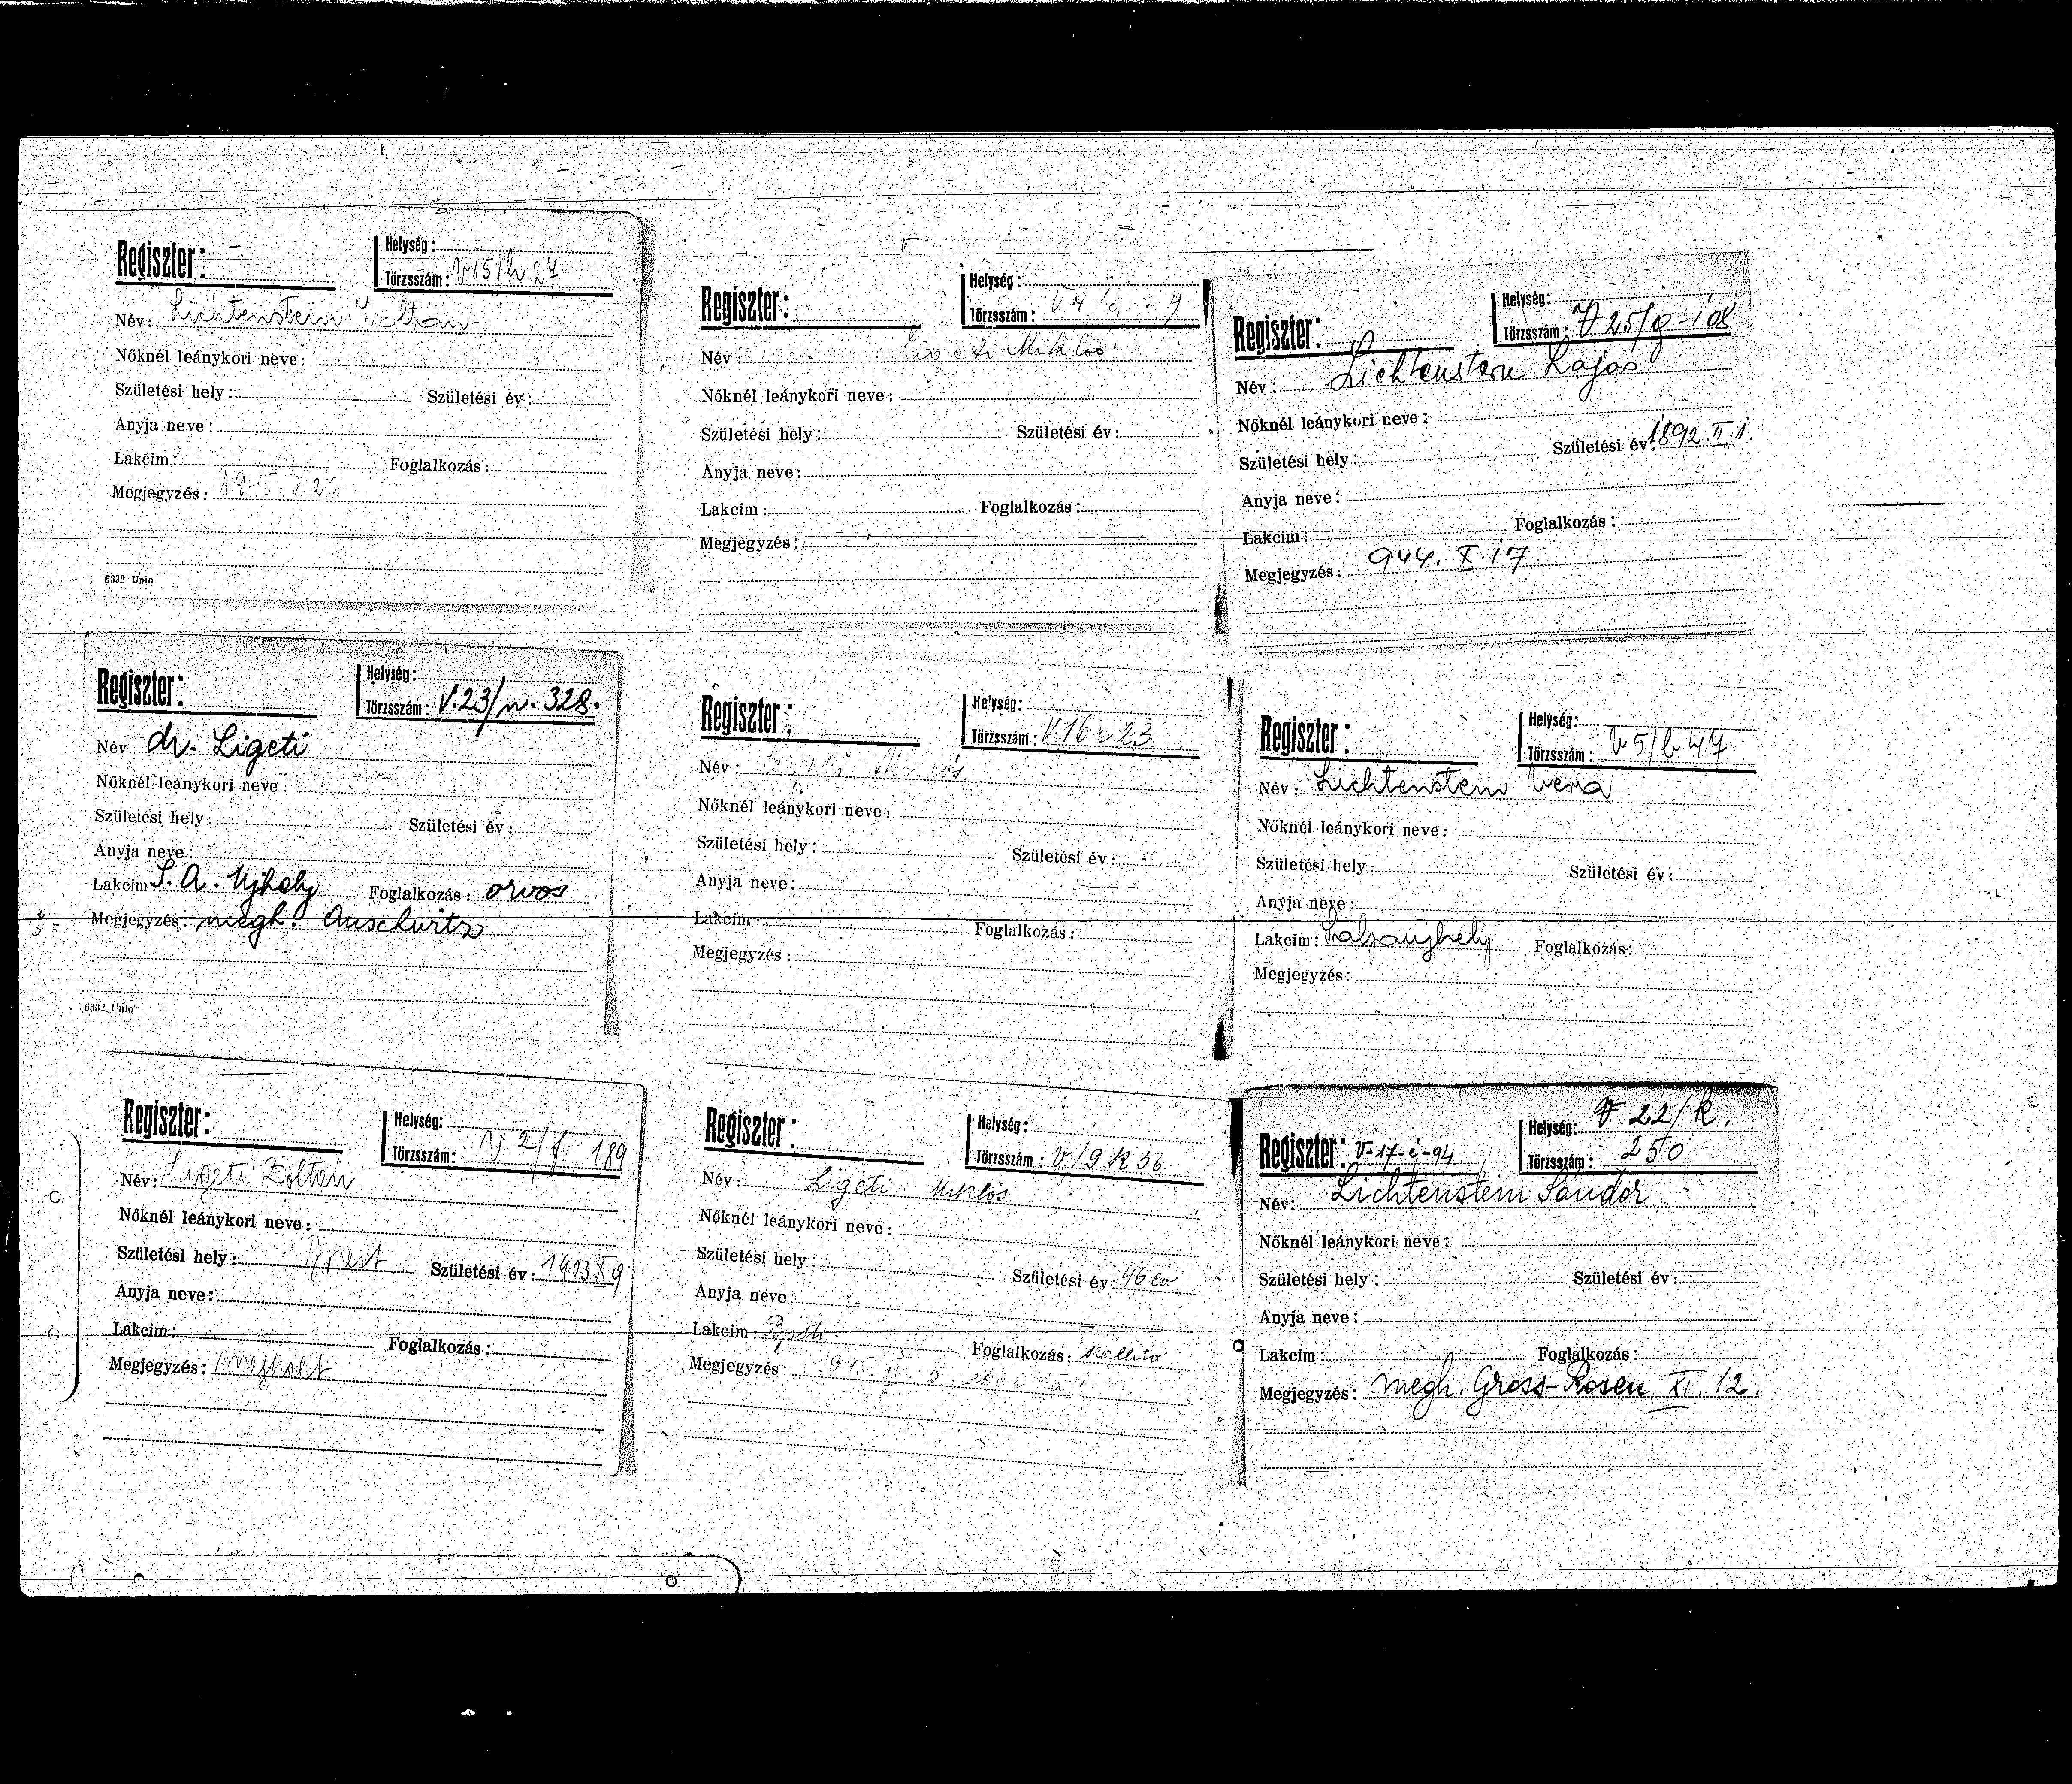 Regiszter:
Helység:
Törzsszám: V 15/h 27
Név: Lichtenstein Zoltán
Nőknél leánykori neve:
Születési hely: Születési év:
Anyja neve:
Lakcim: Foglalkozás:
Megjegyzés:
6332 Unio
Regiszter:
Helység:
Törzsszám:
Név: Ligeti Miklós
Nőknél leánykori neve:
Születési hely: Születési év:
Anyja neve:
Lakcim: Foglalkozás:
Megjegyzés:
Regiszter:
Helység:
Törzsszám: V 25/g-108
Név: Lichtenstein Lajos
Nőknél leánykori neve:
Születési hely: Születési év: 1892.II.1.
Anyja neve:
Lakcim: Foglalkozás:
Megjegyzés: 944. X. 17.
Regiszter:
Helység:
Törzsszám: V.23/n. 328.
Név dr. Ligeti
Nőknél leánykori neve:
Születési hely: Születési év:
Anyja neve:
Lakcim S. A. Ujhely Foglalkozás: orvos
Megjegyzés: megh. Auschwitz
6332 Unio
Regiszter:
Helység:
Törzsszám: V 16 23
Név:
Nőknél leánykori neve:
Születési hely: Születési év:
Anyja neve:
Lakcim: Foglalkozás:
Megjegyzés:
Regiszter:
Helység:
Törzsszám: V 5/b 47
Név: Lichtenstein Vera
Nőknél leánykori neve:
Születési hely: Születési év:
Anyja neve:
Lakcim: Foglalkozás:
Megjegyzés:
Regiszter:
Helység:
Törzsszám: V 2/f 189
Név: Ligeti Zoltán
Nőknél leánykori neve:
Születési hely: Bpest Születési év: 1903 X 9
Anyja neve:
Lakcim: Foglalkozás:
Megjegyzés: meghalt
Regiszter:
Helység:
Törzsszám: V/9 k 56
Név: Ligeti Miklós
Nőknél leánykori neve:
Születési hely: Születési év: 46 év
Anyja neve:
Lakcim: Foglalkozás:
Megjegyzés:
Regiszter: V-17-é-94
Helység: V 22/k.
Törzsszám: 250
Név: Lichtenstein Sándor
Nőknél leánykori neve:
Születési hely: Születési év:
Anyja neve:
Lakcim: Foglalkozás:
Megjegyzés: megh. Gross-Rosen XI. 12.